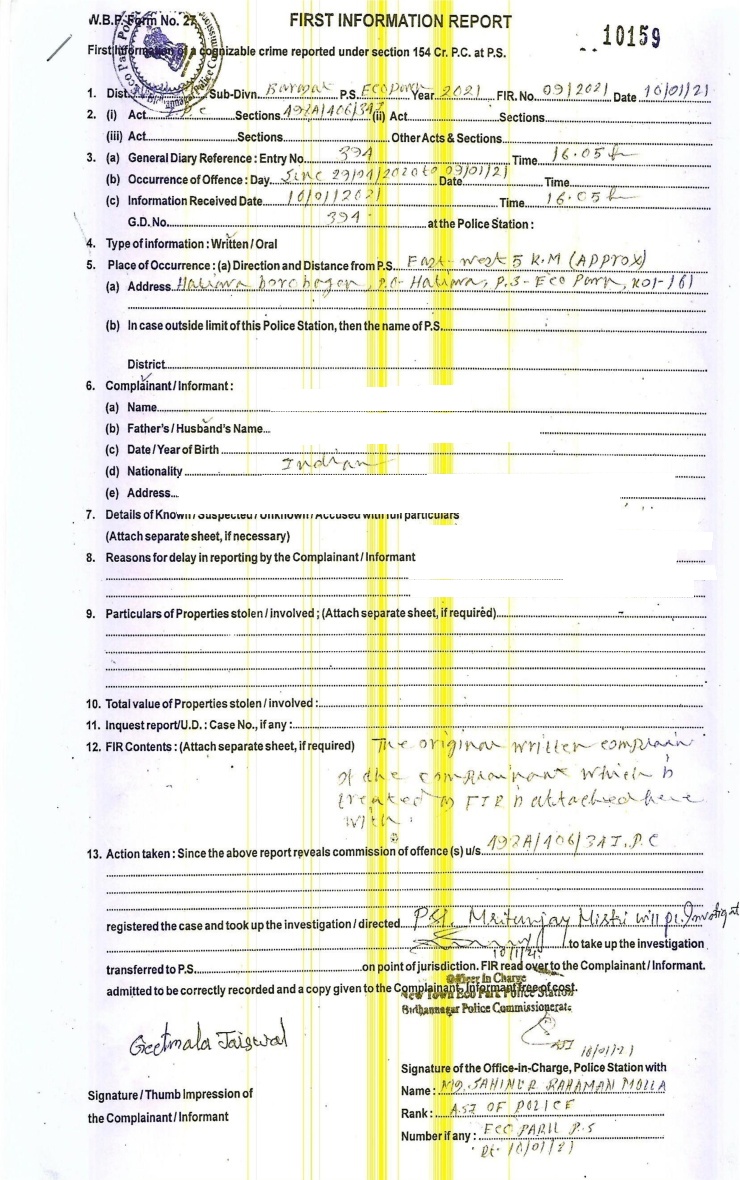 W.B.P. Form No. 27
FIRST INFORMATION REPORT
10159
First Information of a cognizable crime reported under section 154 Cr. P.C. at P.S.
1. Dist. Sub-Divn. Barasat P.S. Ecopark Year 2021 FIR. No. 09/2021 Date 10/01/21
2. (i) Act I.P.C Sections 492A/406/34 (ii) Act Sections
(iii) Act Sections Other Acts & Sections
3. (a) General Diary Reference : Entry No. 394 Time 16.05 h
(b) Occurrence of Offence : Day Since 29/01/2020 to 09/01/21 Date Time
(c) Information Received Date 10/01/2021 Time 16.05 h
G.D. No. 394 at the Police Station :
4. Type of information : Written / Oral
5. Place of Occurrence : (a) Direction and Distance from P.S. East-west 5 K.M (APPROX)
(a) Address P.S- Eco Park, Kol-161
(b) In case outside limit of this Police Station, then the name of P.S.
District
6. Complainant / Informant :
(a) Name
(b) Father's / Husband's Name
(c) Date / Year of Birth
(d) Nationality Indian
(e) Address
7. Details of Known / Suspected / Unknown / Accused with full particulars
(Attach separate sheet, if necessary)
8. Reasons for delay in reporting by the Complainant / Informant
9. Particulars of Properties stolen / involved ; (Attach separate sheet, if required)
10. Total value of Properties stolen / involved :
11. Inquest report/U.D. : Case No., if any :
12. FIR Contents : (Attach separate sheet, if required) The original written complain
of the complainant which is
treated as FIR is attached here
with.
13. Action taken : Since the above report reveals commission of offence (s) u/s. 492A/406/34 I.P.C
registered the case and took up the investigation / directed PSI. Mritunjay Mistri will pl. Investigat
10/1/21 to take up the investigation
transferred to P.S. on point of jurisdiction. FIR read over to the Complainant / Informant.
Officer in Charge
admitted to be correctly recorded and a copy given to the Complainant, Informant free of cost.
New Town Eco Park Police Station
Bidhannagar Police Commissionerate
Geetmala Jaiswal
ASI 10/01/21
Signature of the Office-in-Charge, Police Station with
Signature / Thumb Impression of
Name : MD. SAHINUR RAHAMAN MOLLA
the Complainant / Informant
Rank : ASI OF POLICE
Number if any : ECO PARK P.S
Dt. 10/01/21